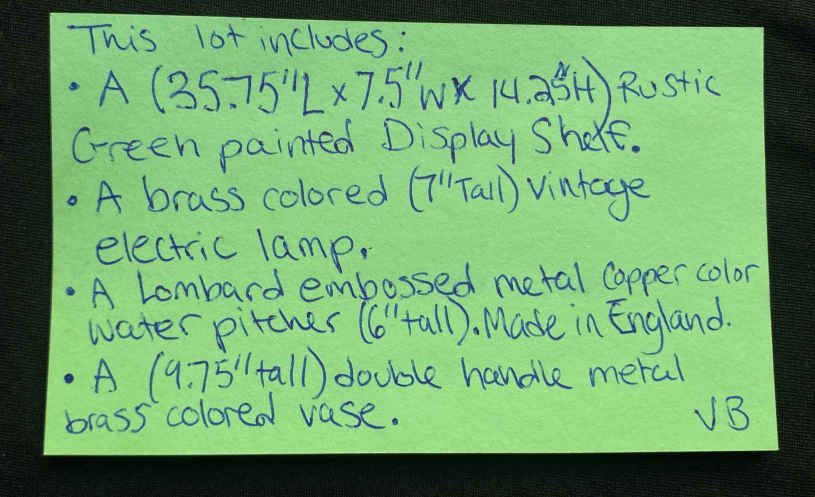 This lot includes:
• A (35.75"L x 7.5"W x 14.25"H) Rustic
Green painted Display Shelf.
• A brass colored (7" Tall) Vintage
electric lamp.
• A Lombard embossed metal Copper color
water pitcher (6" tall). Made in England.
• A (9.75" tall) double handle metal
brass colored vase. VB